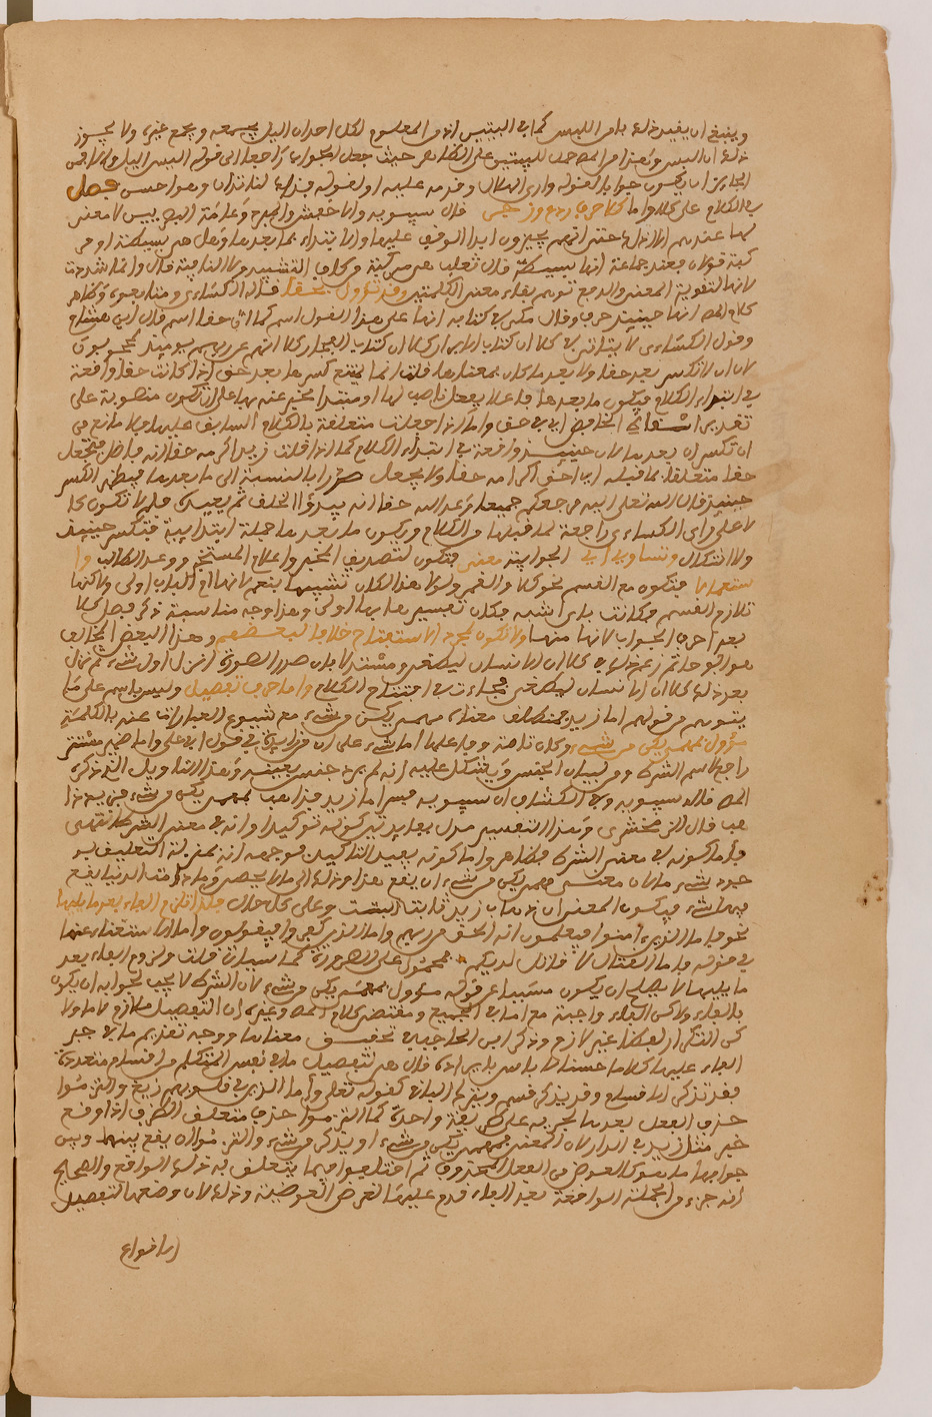 وينبغي ان يقيد ذلك بامن اللبس كما في البيتين اذ من المعلوم لكل احد ان الليل يجمعه ويجمع غيره ولا يجوز
الجائز ان يكون جوابا لقوله وارى الهلال وقدمه عليه او لقوله فذلك لنا تدان وهو احسن فصل
في الكلام على كلا واما كلا حرف ردع وزجر قال سيبويه والاخفش والمبرد وعامة البصريين لا معنى
لها عندهم الا ذلك حتى انهم يجيزون ابدا الوقف عليها والابتداء بما بعدها وهل هي بسيطة او مر
كبة قولان فعند جماعة انها بسيطة قال ثعلب هي مركبة من كاف التشبيه ولا النافية قال وانما شددت
لامها لتقوية المعنى ولدفع توهم بقاء معنى الكلمتين وقد تؤول بحقا قاله الكسائي ومتابعوه وظاهر
كلام انها حينئذ حرف وقال مكي في كتابه انها على هذا القول اسم كما ان حقا اسم قال ابن هشام
وقول الكسائي لا يتأتى في كلا ان كتاب الابرار كلا ان كتاب الفجار كلا انهم عن ربهم يومئذ لمحجوبون
لان ان لا تكسر بعد حقا ولا بعد ما كان بمعناها قلت انما يمتنع كسرها بعد حق اذا كانت حقا واقعة
في ابتداء الكلام فيكون ما بعدها فاعلا بفعل ناصب لها او مبتدا مخبر عنه بها على ان تكون منصوبة على
تقدير اسقاط الخافض اي في حق واما اذا جعلت متعلقة بالكلام السابق عليها فلا مانع من
ان تكسر ان بعدها لان حينئذ واقعة في ابتداء الكلام كما اذا قلت زيد اكرمه حقا انه فاضل فتجعل
حقا متعلقا بما قبله اي احق اكرامه حقا ولا يجعل بالنسبة الى ما بعدها فيظهر الكسر
حينئذ قال الله تعالى اليه مرجعكم جميعا وعد الله حقا انه يبدؤا الخلق ثم يعيده فلم لا تكون كلا
على راي الكسائي راجعة لما قبلها من الكلام ويكون ما بعدها جملة ابتدائية فتكسر حينئذ
ولا اشكال وتساوي اي الجوابية معنى فتكون لتصديق المخبر واعلام المستخبر ووعد الطالب وا
ستعمالا فتكون مع القسم نحو كلا والقمر ولو لا هذا لكان تشبيهها بنعم لانها ام الباب اولى ولاكنها
تلازم القسم فكانت باي اشبه فكان تفسيرها بها اولى وهذا وجه مناسبة ذكر فصل كلا
بعد احرف الجواب لانها منها ولا تكون لمجرد الاستفتاح خلافا لبعضهم وهذا البعض المخالف
هو ابو حاتم زعم ذلك في كلا ان الانسان ليطغى ومستدلا بان صدر السورة انزل اول شيء ثم نزل
بعد ذلك كلا ان الانسان ليطغى فجاءت في افتتاح الكلام واما حرف تفصيل وليس باسم على ما
يتوهم من قولهم اما زيد فمنطلق معناه مهما يكن من شيء مع شيوع العبارة عنه بالكلمة
مؤول بمهما يكن من شيء وكان تامة وفاعلها اما شيء على ان من زائدة في قول ابي علي واما ضمير مستتر
راجع لاسم الشرط ومن لبيان الجنس ويشكل عليه انه لم يرد جنس بعينه وهذا التاويل الذي ذكره
قاله سيبويه وفي الكشاف ان سيبويه فسر اما زيد فذاهب بمهما يكن من شيء فزيد ذا
هب قال الزمخشري وهذا التفسير مدل بفايدتين كونه توكيدا وانه في معنى الشرط انتهى
فاما كونه في معنى الشرط فظاهر واما كونه يفيد التاكيد فوجهه انه بمنزلة التعليق بو
جود شيء ما لان معنى مهما يكن من شيء ان يقع هذا وذلك الى ما لا يحصر وما دامت الدنيا يقع
فيها شيء فيكون المعنى ان ذهاب زيد ثابت البتة وعلى كل حال فلذا تلزم الفاء بعد ما يليها
نحو فاما الذين امنوا فيعلمون انه الحق من ربهم واما الذين كفروا فيقولون واما الاستغناء عنها
في قوله فاما القتال لا قتال لديكم فمحمول على الضرورة كما سياتي قلت ولزوم الفاء بعد
ما يليها لا يصلح ان يكون مسببا عن قوله مؤول بمهما يكن من شيء لان الشرط لا يجب لجوابه ان يكون
بالفاء ولاكن الفاء واجبة مع اما في الجميع ومقتضى كلام وغيره ان التفصيل ملازم لاما ولا
كن التكرار لفظا غير لازم وذكر ابن الحاجب في تحقيق معناها ووجه تقديم ما في حيز
الفاء عليها كلاما حسنا لا باس بايراده قال هي لتفصيل ما في نفس المتكلم من اقسام متعددة
فقد تذكر الاقسام وقد يذكر قسم ويترك الباقي كقوله تعالى فاما الذين في قلوبهم زيغ والتزموا
حذف الفعل بعدها لجريه على طريقة واحدة كما التزموا حذف متعلق الظرف اذا وقع
خبرا مثل زيد في الدار لان المعنى مهما يكن من شيء او يذكر من شيء والتزموا ان يقع بينها وبين
جوابها ما هو كالعوض من الفعل المحذوف ثم اختلفوا فيما يتعلق به ذلك الواقع والصحيح
انه جزء من الجملة الواقعة بعد الفاء قدم عليها لغرض العوضية وذلك لان وضعها لتفصيل
الانواع